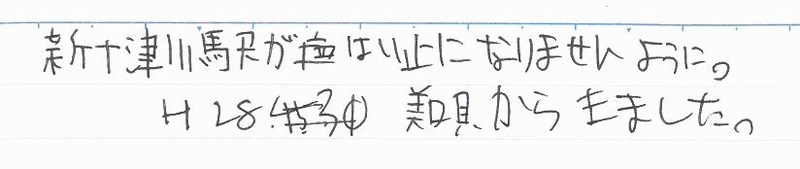 新十津川駅が廃止になりませんように。
H28 美唄から来ました。